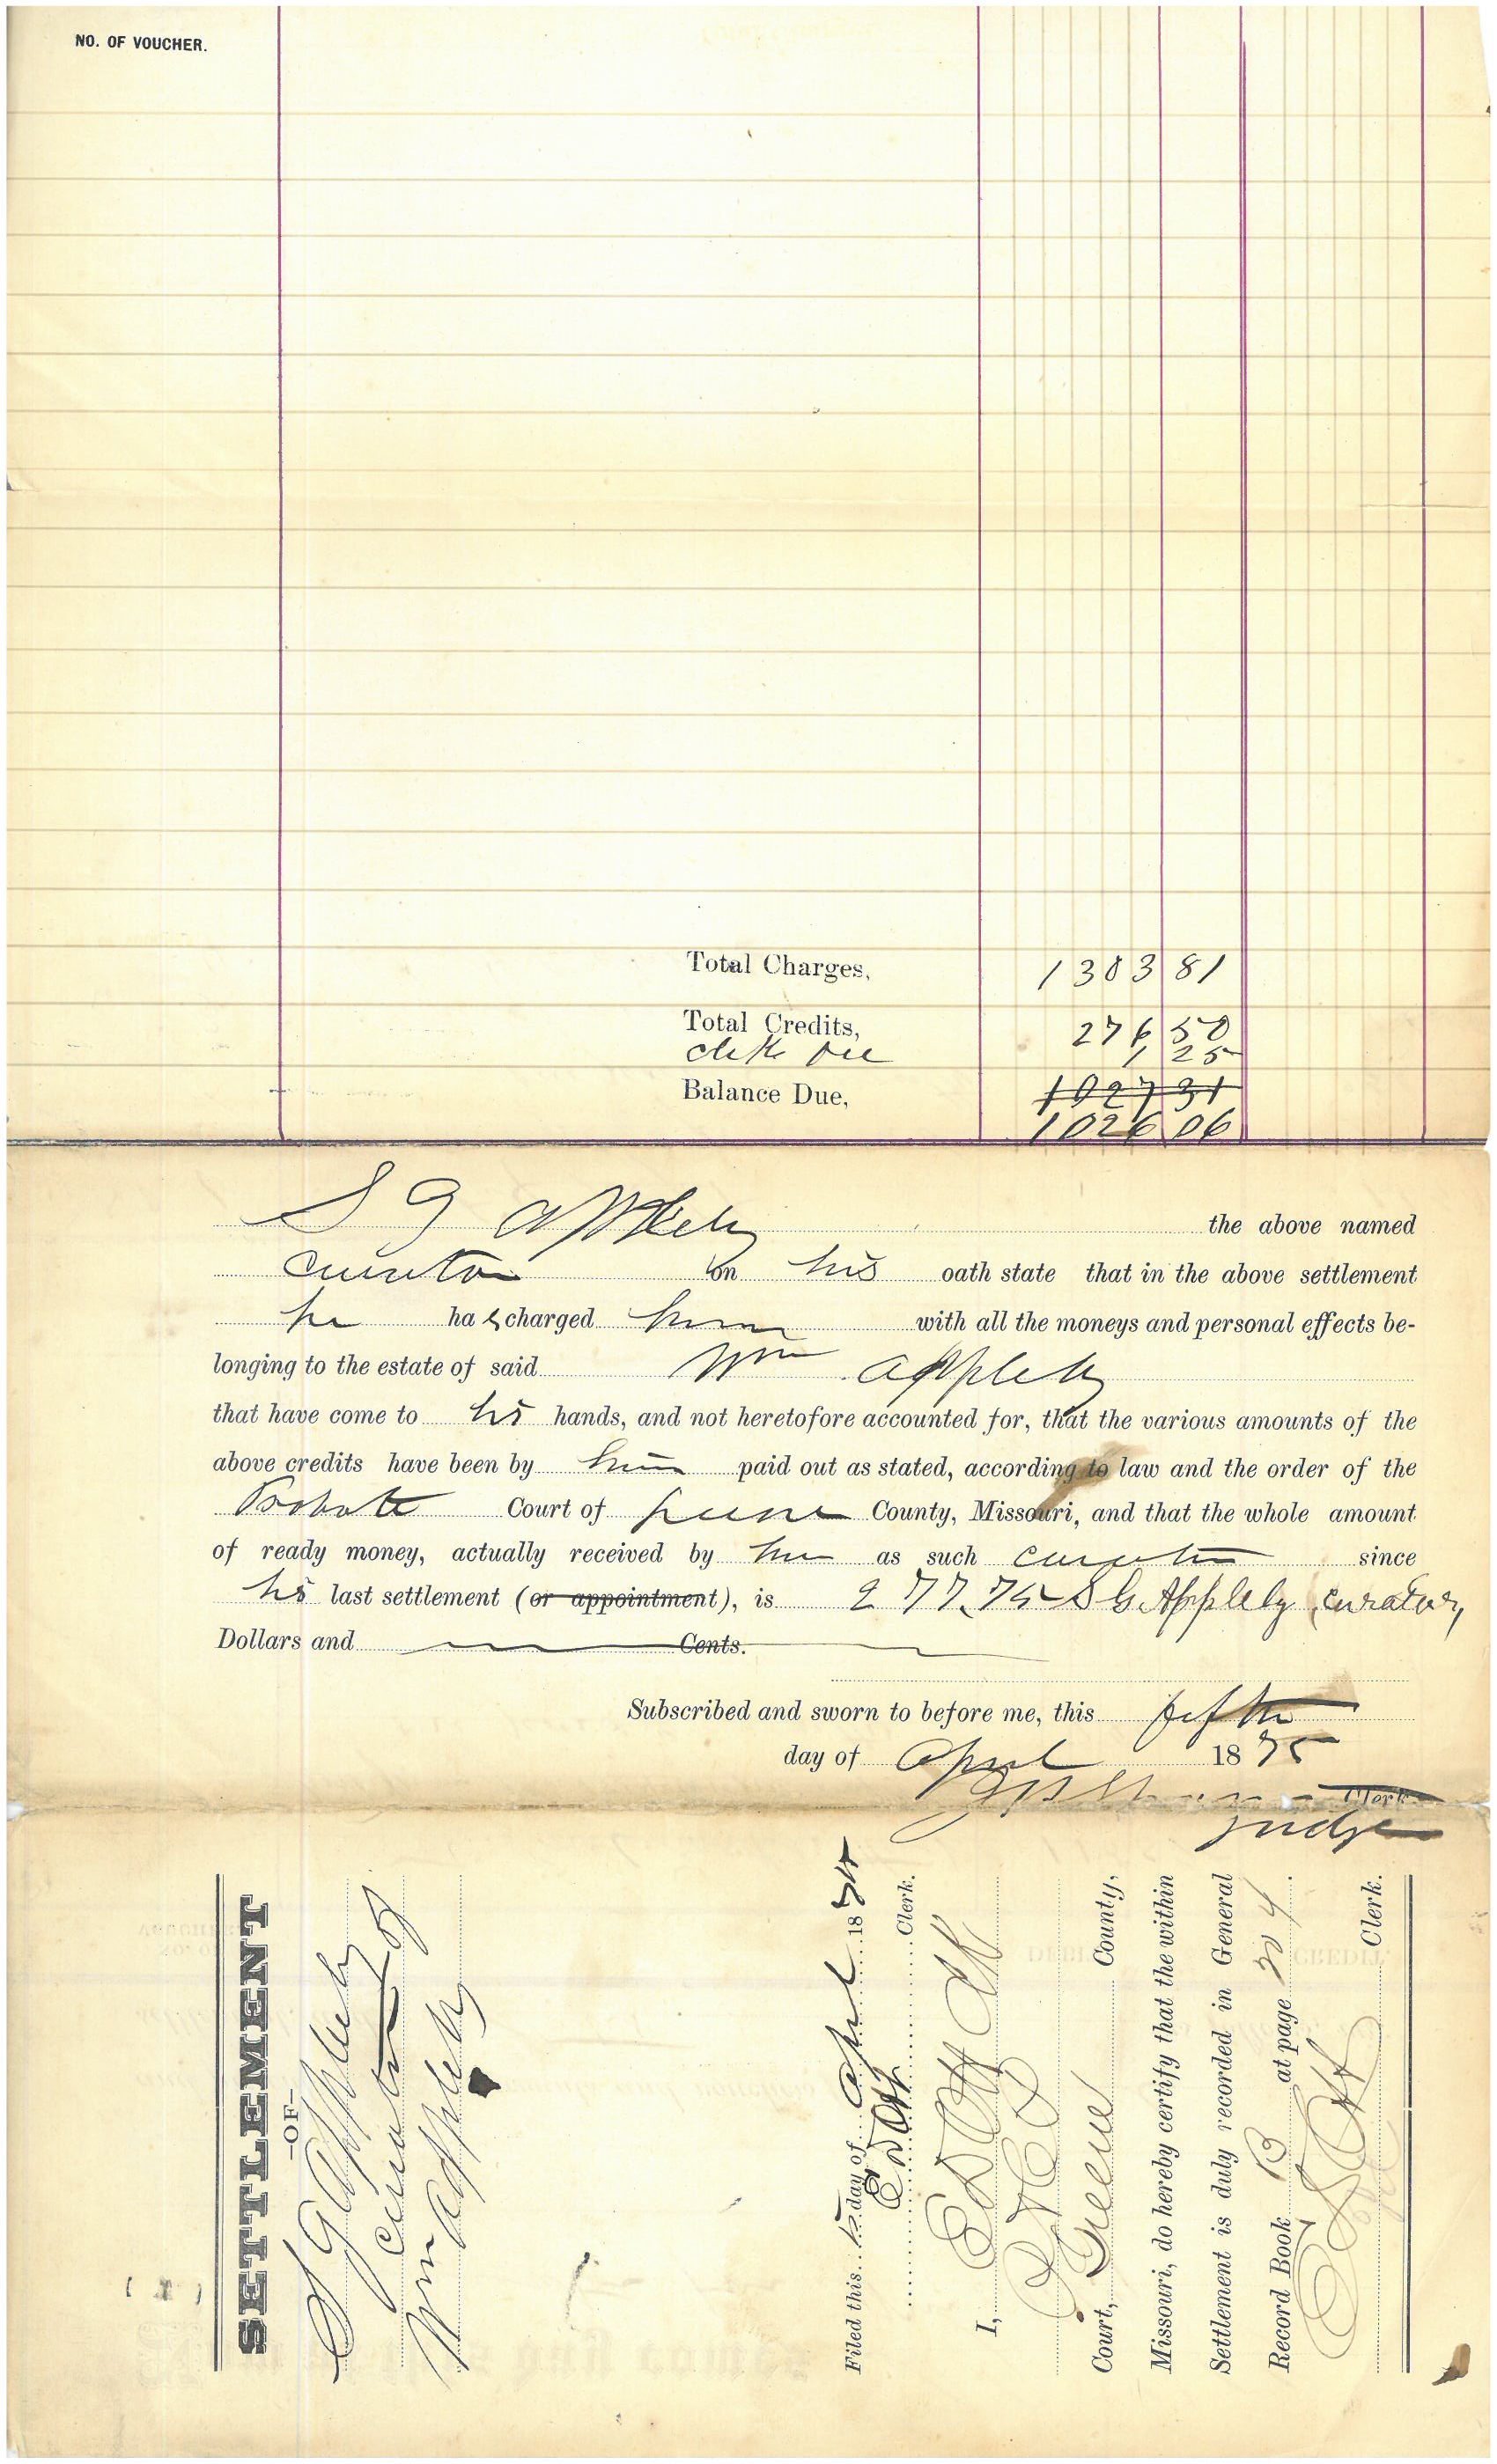 NO. OF VOUCHER.
Total Charges, 1303 81
Total Credits, 276 50
Clerk fee 1 25
Balance Due, 1027 31
1026 06
S G Appleby the above named
Curator on his oath state that in the above settlement
he has charged him with all the moneys and personal effects be-
longing to the estate of said Wm Appleby
that have come to his hands, and not heretofore accounted for, that the various amounts of the
above credits have been by him paid out as stated, according to law and the order of the
Probate Court of Greene County, Missouri, and that the whole amount
of ready money, actually received by him as such curator since
his last settlement (or appointment), is 277.75 S G Appleby, curator,
Dollars and Cents.
Subscribed and sworn to before me, this fifth
day of April 1875
Clerk
Judge
SETTLEMENT
-OF-
S G Appleby
Curator of
Wm Appleby
Filed this 5 day of April 1875
E D Ott Clerk.
I, E D Ott Clk
Court, Greene County,
Missouri, do hereby certify that the within
Settlement is duly recorded in General
Record Book B at page 304.
E D Ott Clerk.